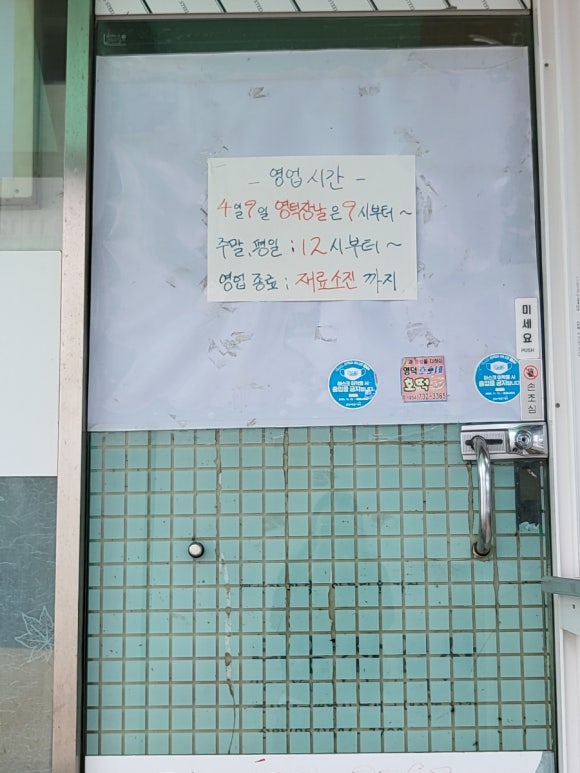 - 영업시간 -
4월 9일 영덕장날은 9시부터~
주말, 평일 : 12시부터~
영업 종료 : 재료소진 까지
미세요
PUSH
손조심
마스크 미착용 시
출입을 금지합니다.
영덕
호떡
마스크 미착용 시
출입을 금지합니다.